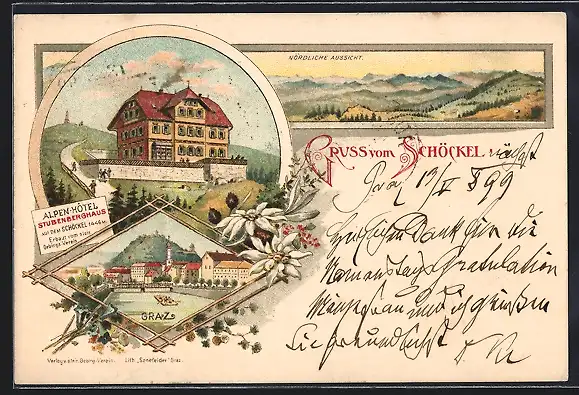 NÖRDLICHE AUSSICHT.
GRUSS vom SCHÖCKEL nächst
Graz 19/I 899
Dank für die
Namenstags Gratulation
Meine Frau und ich grüßen
Sie freundlichst
ALPEN-HÔTEL
STUBENBERGHAUS
AUF DEM SCHÖCKEL 1446 M.
Erbaut vom steir.
Gebirgs Verein.
GRAZ
Verlag v. steir. Gebirgs-Verein.
Lith. „Senefelder" Graz.